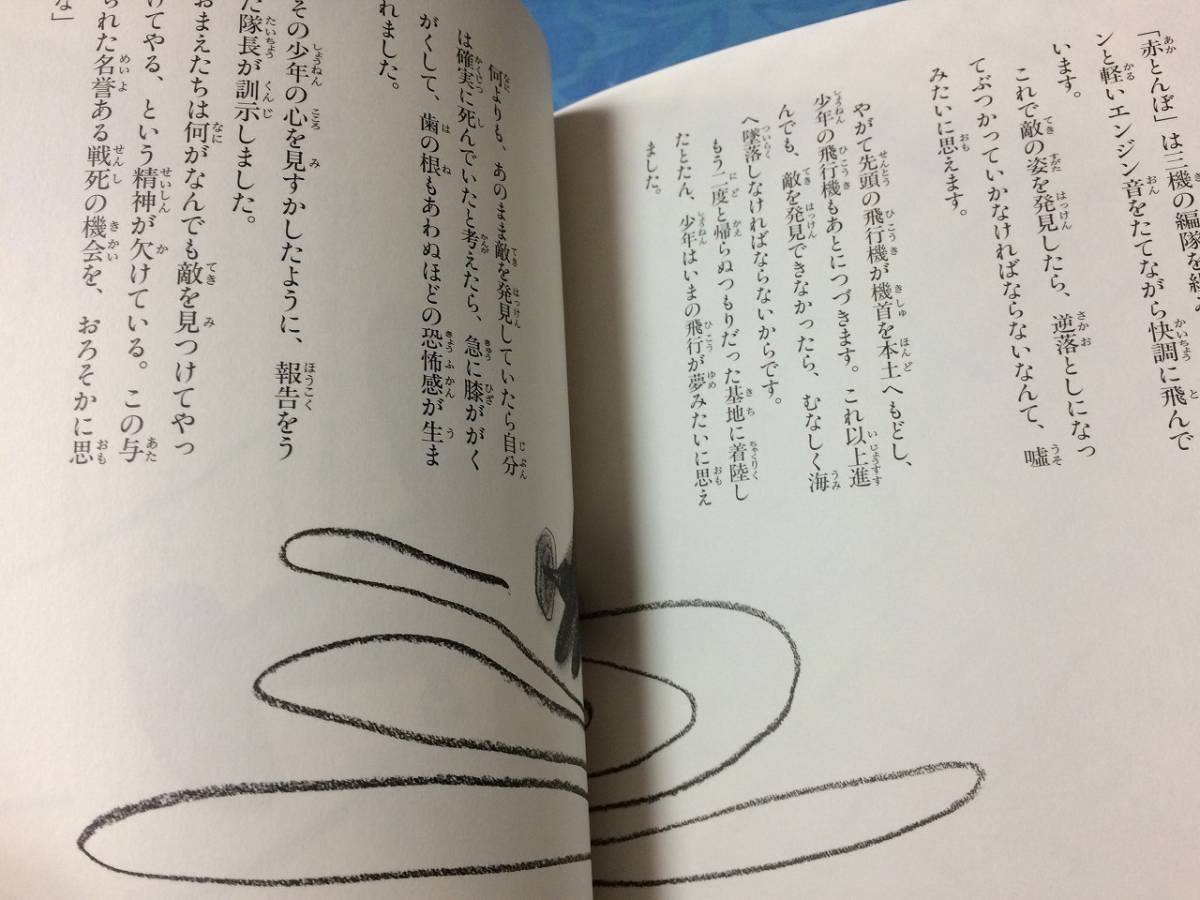 「赤とんぼ」は三機の編隊を組み
ンと軽いエンジン音をたてながら快調に飛んで
います。
これで敵の姿を発見したら、逆落としになっ
てぶつかっていかなければならないなんて、嘘
みたいに思えます。
やがて先頭の飛行機が機首を本土へもどし、
少年の飛行機もあとにつづきます。これ以上進
んでも、敵を発見できなかったら、むなしく海
へ墜落しなければならないからです。
もう二度と帰らぬつもりだった基地に着陸し
たとたん、少年はいまの飛行が夢みたいに思え
ました。
何よりも、あのまま敵を発見していたら自分
は確実に死んでいたと考えたら、急に膝ががく
がくして、歯の根もあわぬほどの恐怖感が生ま
れました。
その少年の心を見すかしたように、報告をう
た隊長が訓示しました。
おまえたちは何がなんでも敵を見つけてやっ
けてやる、という精神が欠けている。この与
られた名誉ある戦死の機会を、おろそかに思
な」